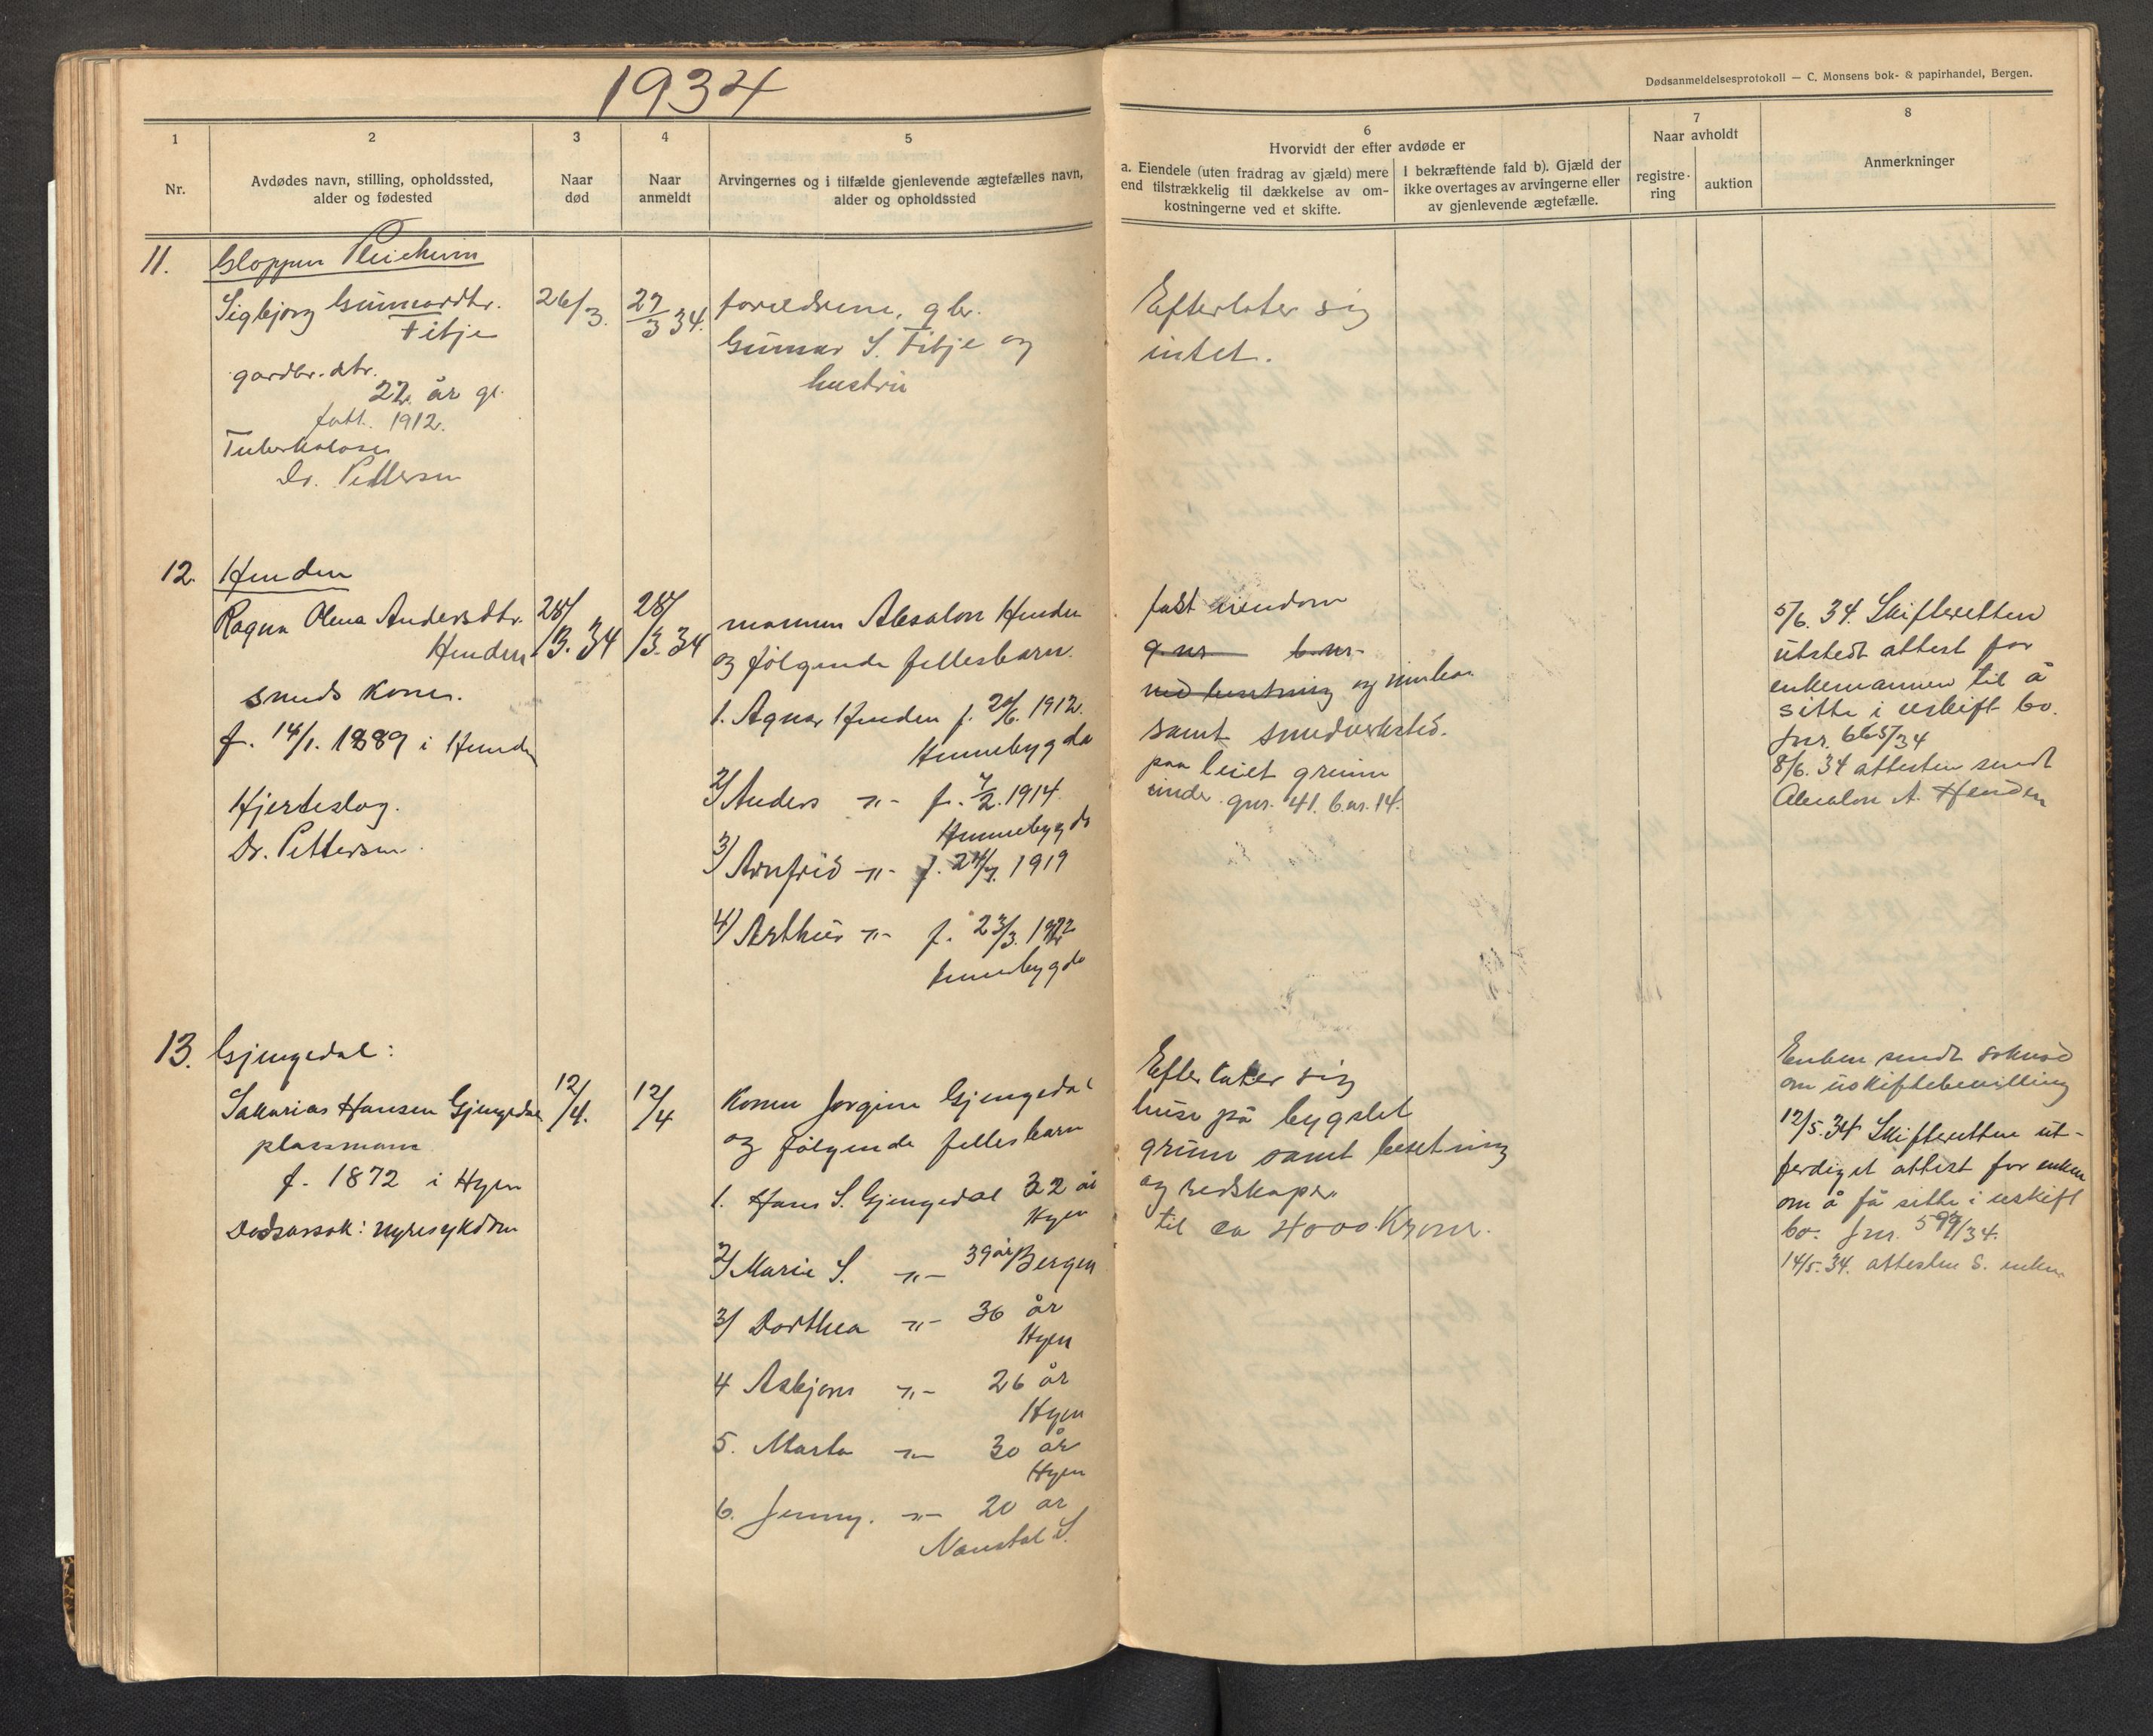 1934
Dødsanmeldelsesprotokoll — C. Monsens bok- & papirhandel, Bergen.
1
2
3
4
5
6
7
8
Nr.
Avdødes navn, stilling, opholdssted,
alder og fødested
Naar
død
Naar
anmeldt
Arvingernes og i tilfælde gjenlevende ægtefælles navn,
alder og opholdssted
Hvorvidt der efter avdøde er
a. Eiendele (uten fradrag av gjæld) mere
end tilstrækkelig til dækkelse av om-
kostningerne ved et skifte.
I bekræftende fald b). Gjæld der
ikke overtages av arvingerne eller
av gjenlevende ægtefælle.
Naar avholdt
registre-
ring
auktion
Anmerkninger
11.
Gloppen Pleieheim
Sigbjørg Gunnardtr.
Fitje
gardbr. dtr.
22 år gl.
født. 1912.
Tuberkulose
Dr. Pettersen
26/3.
27/3 34.
foreldrene, gbr.
Gunnar S. Fitje og
hustru
Efterlater sig
intet.
12.
Henden
Ragna Olena Andersdtr.
Henden
smeds kone.
f. 14/1. 1889 i Henden
Hjerteslag.
Dr. Pettersen.
28/3. 34
28/3. 34
mannen Absalon Henden
og følgende fellesbarn.
1. Agnar Henden f. 1912.
Hennebygda
2/ Anders -"- f. 7/2. 1914.
Hennebygda
3/ Arnfrid -"- f. 1919
4/ Arthur -"- f. 23/3. 1922
Hennebygda
fast eiendom
g.nr b.nr
med besetning og
samt smedverksted.
paa leiet grunn
under gnr. 41. b.nr. 14.
5/6. 34. Skifteretten
utstedt attest for
enkemannen til å
sitte i uskift bo.
Jnr. 665/34
8/6. 34 attesten sendt
Absalon A. Henden
13.
Gjengedal:
Sakarias Hansen Gjengedal
plassmann
f. 1872 i Hyen
Dødsarsok: nyresykdom
12/4.
12/4
Konen Jorgine Gjengedal
og følgende fellesbarn
1. Hans S. Gjengedal 32 år
Hyen
2/ Marie S. -"- 39 år Bergen
3/ Dorthea -"- 36 år
Hyen
4 Asbjørn -"- 26 år
Hyen
5. Marta -"- 30 år
Hyen
6. Jenny. -"- 20 år
Naustdal S.
Efterlater sig
huse på bygslet
grunn samt besetning
og redskaper
til ca 4000 Kroner.
Enken sendt søknad
om uskiftebevilling
12/5. 34 Skifteretten ut-
ferdiget attest for enken
om å få sitte i uskift
bo. Jnr. 599/34.
14/5. 34. attesten s. enken